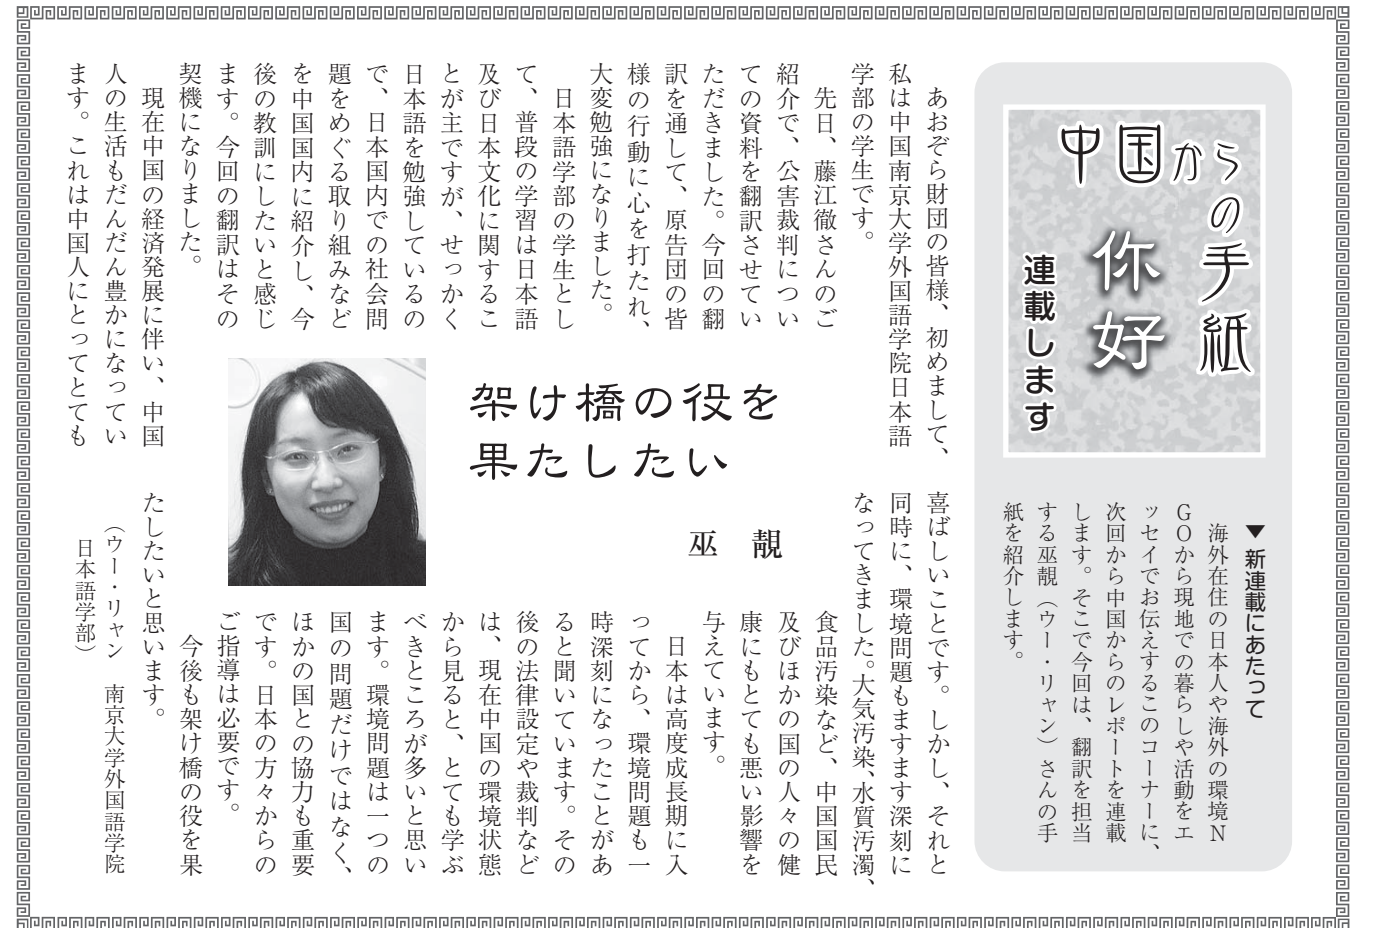 中国からの手紙
你好
連載します
▼新連載にあたって
海外在住の日本人や海外の環境N
GOから現地での暮らしや活動をエ
ッセイでお伝えするこのコーナーに、
次回から中国からのレポートを連載
します。そこで今回は、翻訳を担当
する巫靚（ウー・リャン）さんの手
紙を紹介します。
架け橋の役を
果たしたい
巫 靚
あおぞら財団の皆様、初めまして、
私は中国南京大学外国語学院日本語
学部の学生です。
先日、藤江徹さんのご
紹介で、公害裁判につい
ての資料を翻訳させてい
ただきました。今回の翻
訳を通して、原告団の皆
様の行動に心を打たれ、
大変勉強になりました。
日本語学部の学生とし
て、普段の学習は日本語
及び日本文化に関するこ
とが主ですが、せっかく
日本語を勉強しているの
で、日本国内での社会問
題をめぐる取り組みなど
を中国国内に紹介し、今
後の教訓にしたいと感じ
ます。今回の翻訳はその
契機になりました。
現在中国の経済発展に伴い、中国
人の生活もだんだん豊かになってい
ます。これは中国人にとってとても
喜ばしいことです。しかし、それと
同時に、環境問題もますます深刻に
なってきました。大気汚染、水質汚濁、
食品汚染など、中国国民
及びほかの国の人々の健
康にもとても悪い影響を
与えています。
日本は高度成長期に入
ってから、環境問題も一
時深刻になったことがあ
ると聞いています。その
後の法律設定や裁判など
は、現在中国の環境状態
から見ると、とても学ぶ
べきところが多いと思い
ます。環境問題は一つの
国の問題だけではなく、
ほかの国との協力も重要
です。日本の方々からの
ご指導は必要です。
今後も架け橋の役を果
たしたいと思います。
（ウー・リャン 南京大学外国語学院
日本語学部）